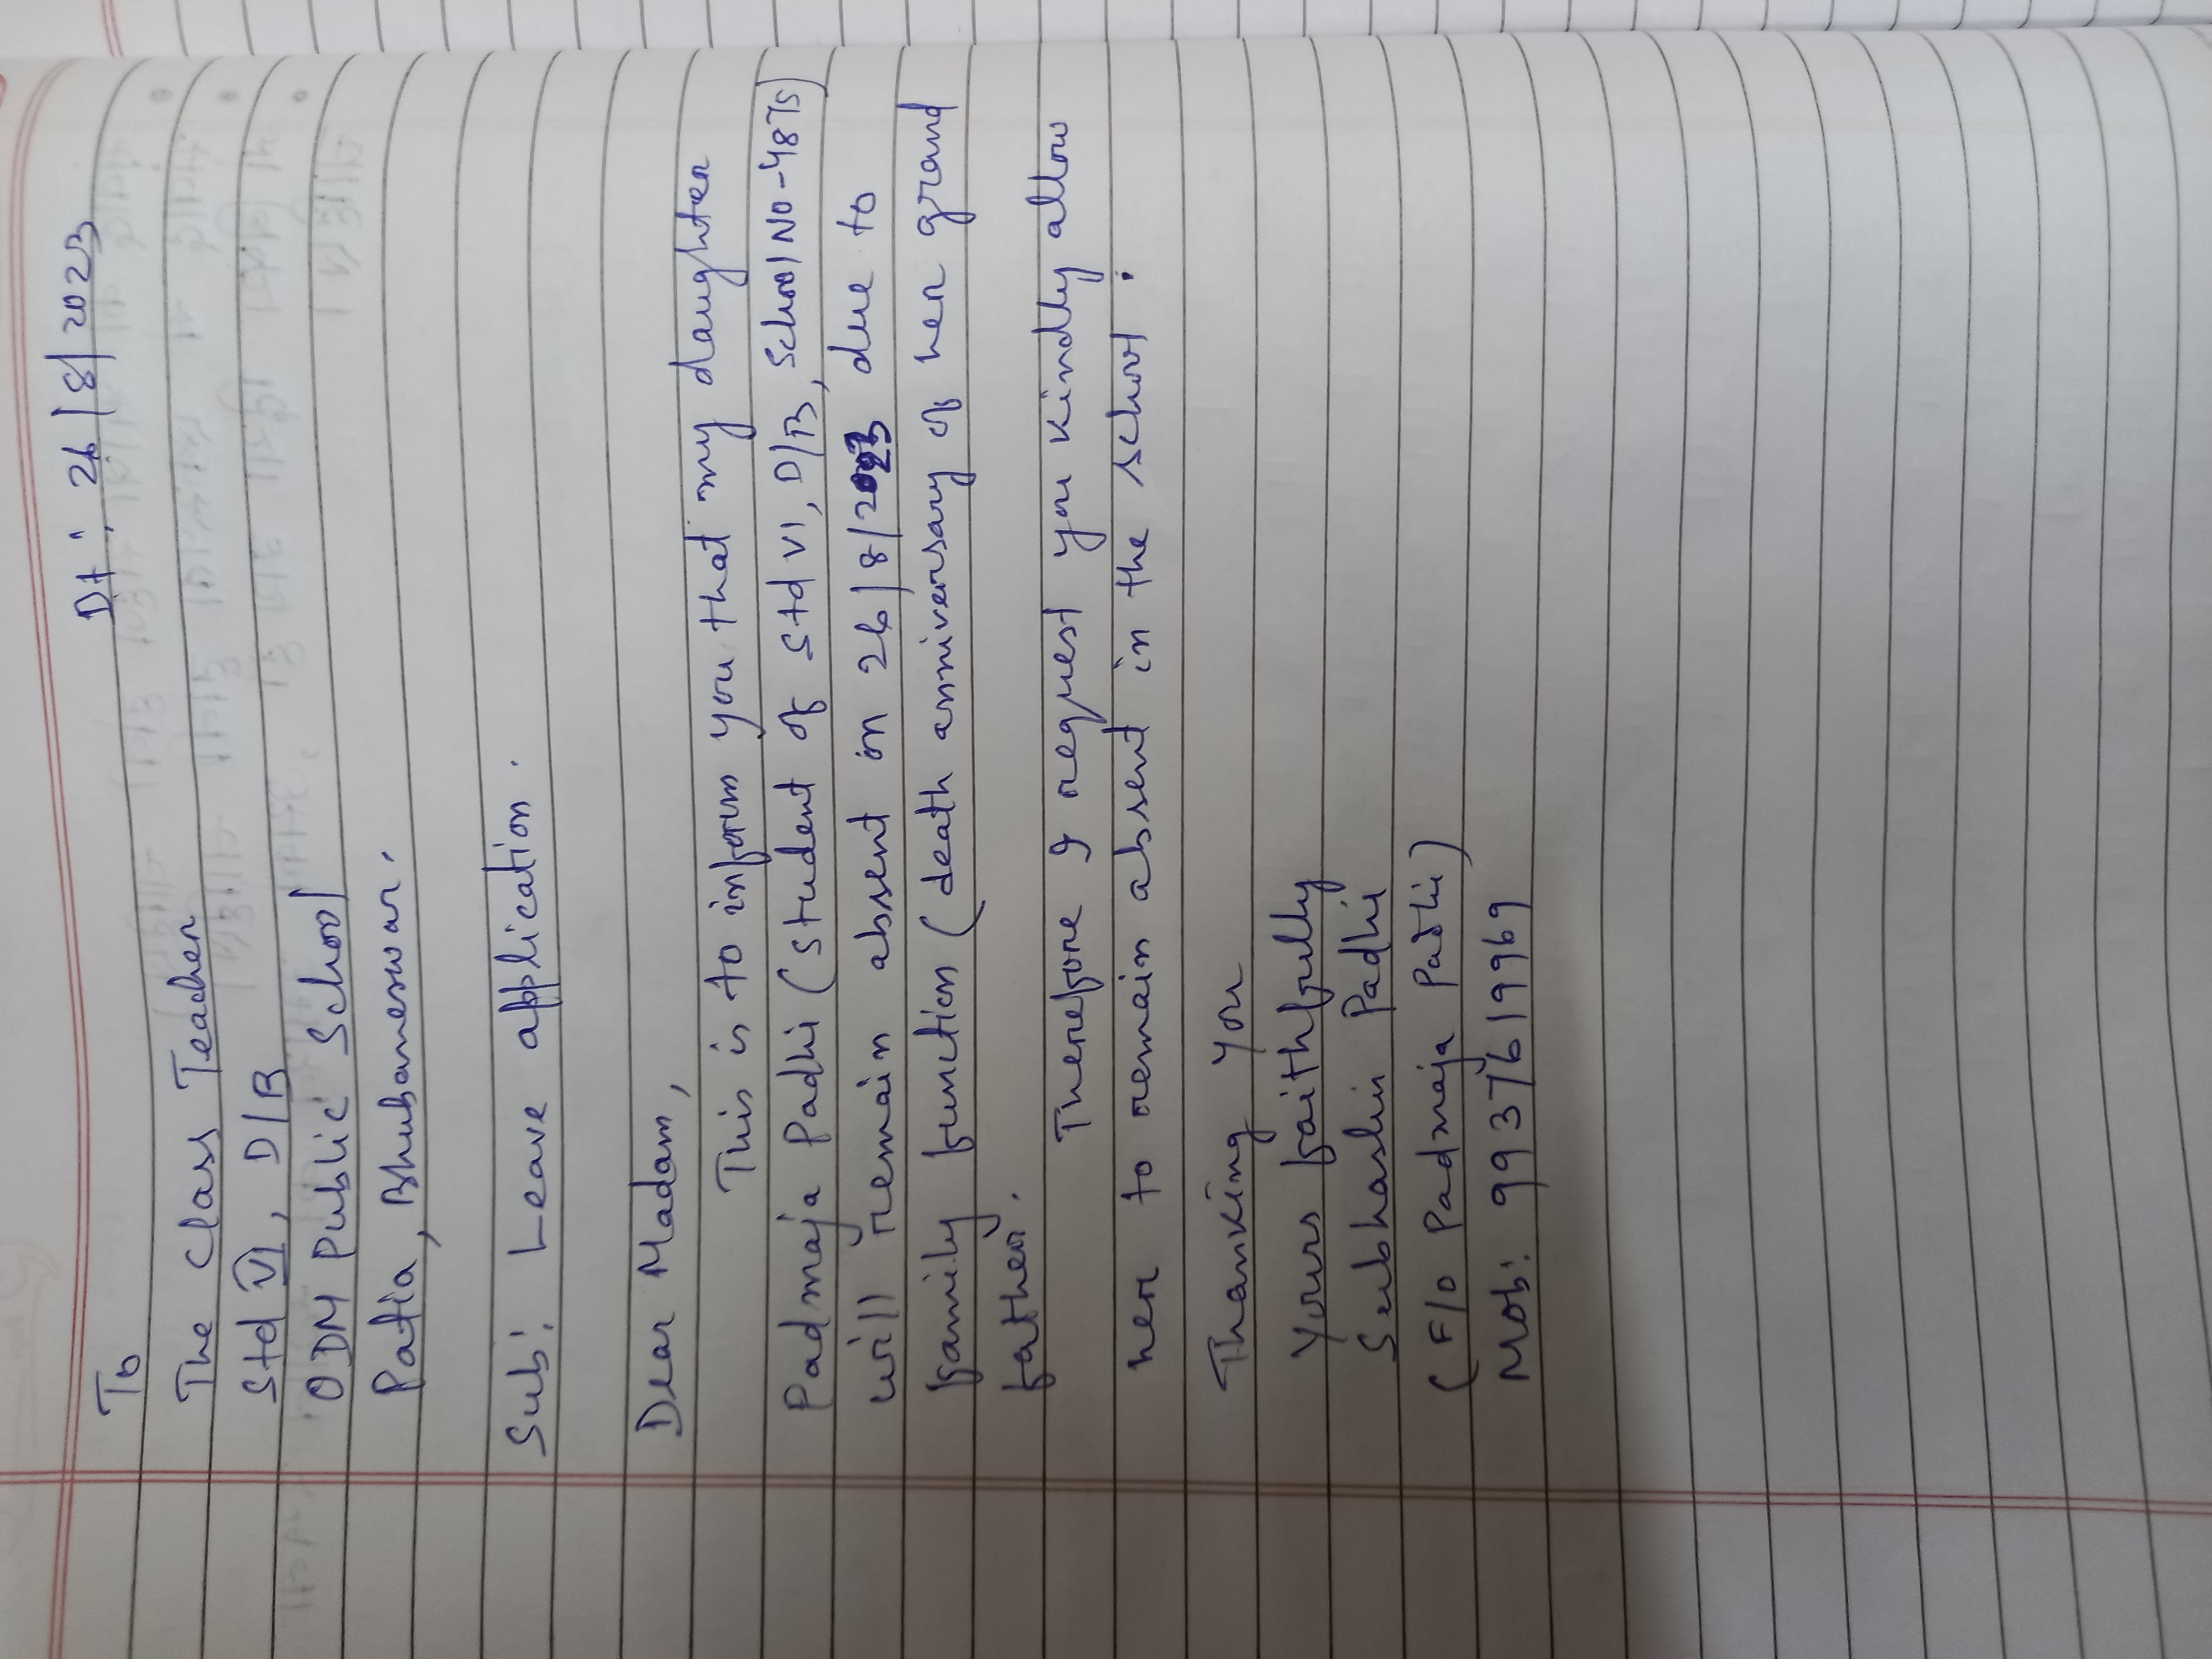 Dt: 26/8/2023
To
The Class Teacher
Std VI, D/B
ODM Public School
Patia, Bhubaneswar.
Sub: Leave application.
Dear Madam,
This is to inform you that my daughter
Padmaja Padhi (student of Std VI, D/B, School No-4875)
will remain absent on 26/8/2023 due to
family function (death anniversary of her grand
father.
Therefore I request you kindly allow
her to remain absent in the school.
Thanking you
Yours faithfully
Subhashis Padhi
(F/o Padmaja Padhi)
Mob: 9937619969